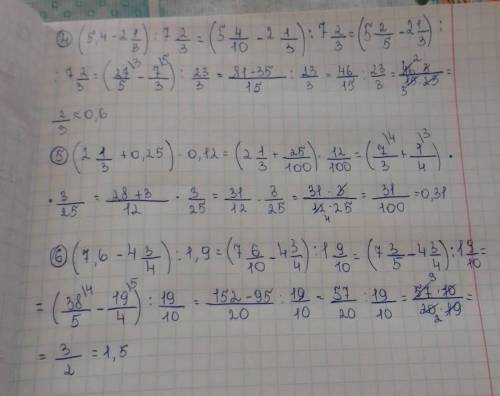 ④ (5,4 - 2 1/3) : 7 2/3 = (5 4/10 - 2 1/3) : 7 2/3 = (5 2/5 - 2 1/3) :
: 7 2/3 = (27/5 \3 - 7/3 \5) : 23/3 = 81-35/15 : 23/3 = 46/15 : 23/3 = 46 2 · 3/15 5 · 23 =
2/5 = 0,6
⑤ (2 1/3 + 0,25) · 0,12 = (2 1/3 + 25/100) · 12/100 = (7/3 \4 + 1/4 \3) ·
· 3/25 = 28+3/12 · 3/25 = 31/12 · 3/25 = 31 · 3/12 4 · 25 = 31/100 = 0,31
⑥ (7,6 - 4 3/4) : 1,9 = (7 6/10 - 4 3/4) : 1 9/10 = (7 3/5 - 4 3/4) : 1 9/10 =
= (38/5 \4 - 19/4 \5) : 19/10 = 152-95/20 : 19/10 = 57/20 : 19/10 = 57 3 · 10/20 2 · 19 =
= 3/2 = 1,5